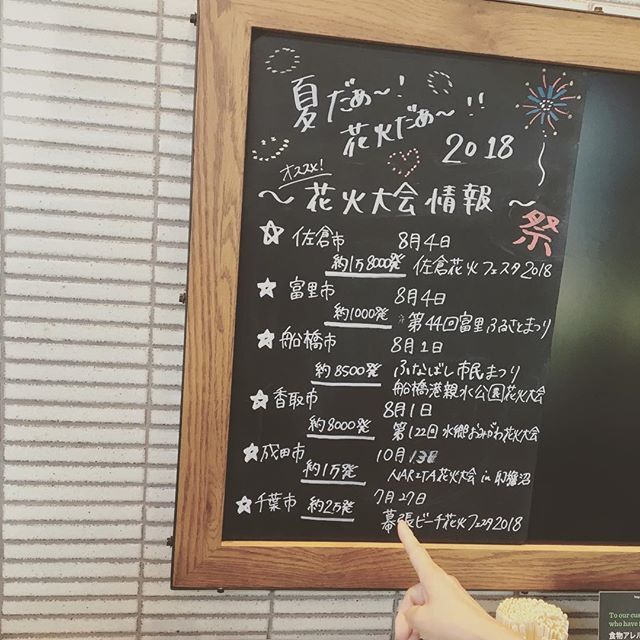 夏だぁ〜!
花火だぁ〜!!
2018
オススメ!
〜花火大会情報〜
祭
☆佐倉市 8月4日
約1万8000発 佐倉花火フェスタ2018
☆富里市 8月4日
約1000発 ☆第44回富里ふるさとまつり
☆船橋市 8月1日
約8500発 ふなばし市民まつり
船橋港親水公園花火大会
☆香取市 8月1日
約8000発 第122回水郷おみがわ花火大会
☆成田市 10月13日
約1万発 NARITA花火大会in印旛沼
☆千葉市 約2万発 7月27日
幕張ビーチ花火フェスタ2018
To our cu
who have